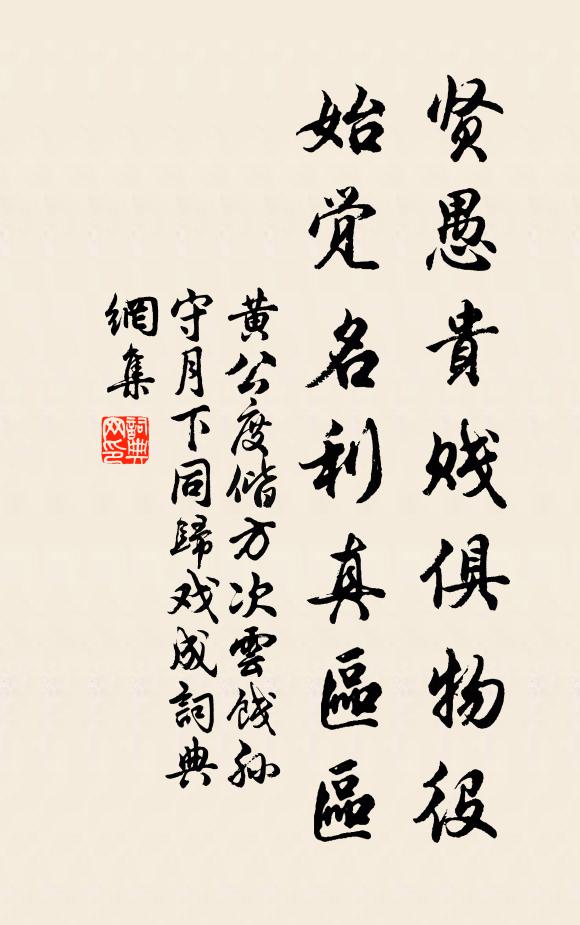 贤愚貴贱俱物役
始觉名利真區區
黄公度偕方次雲餞孙
守月下同歸戏成詞典
網集
詞典
网印